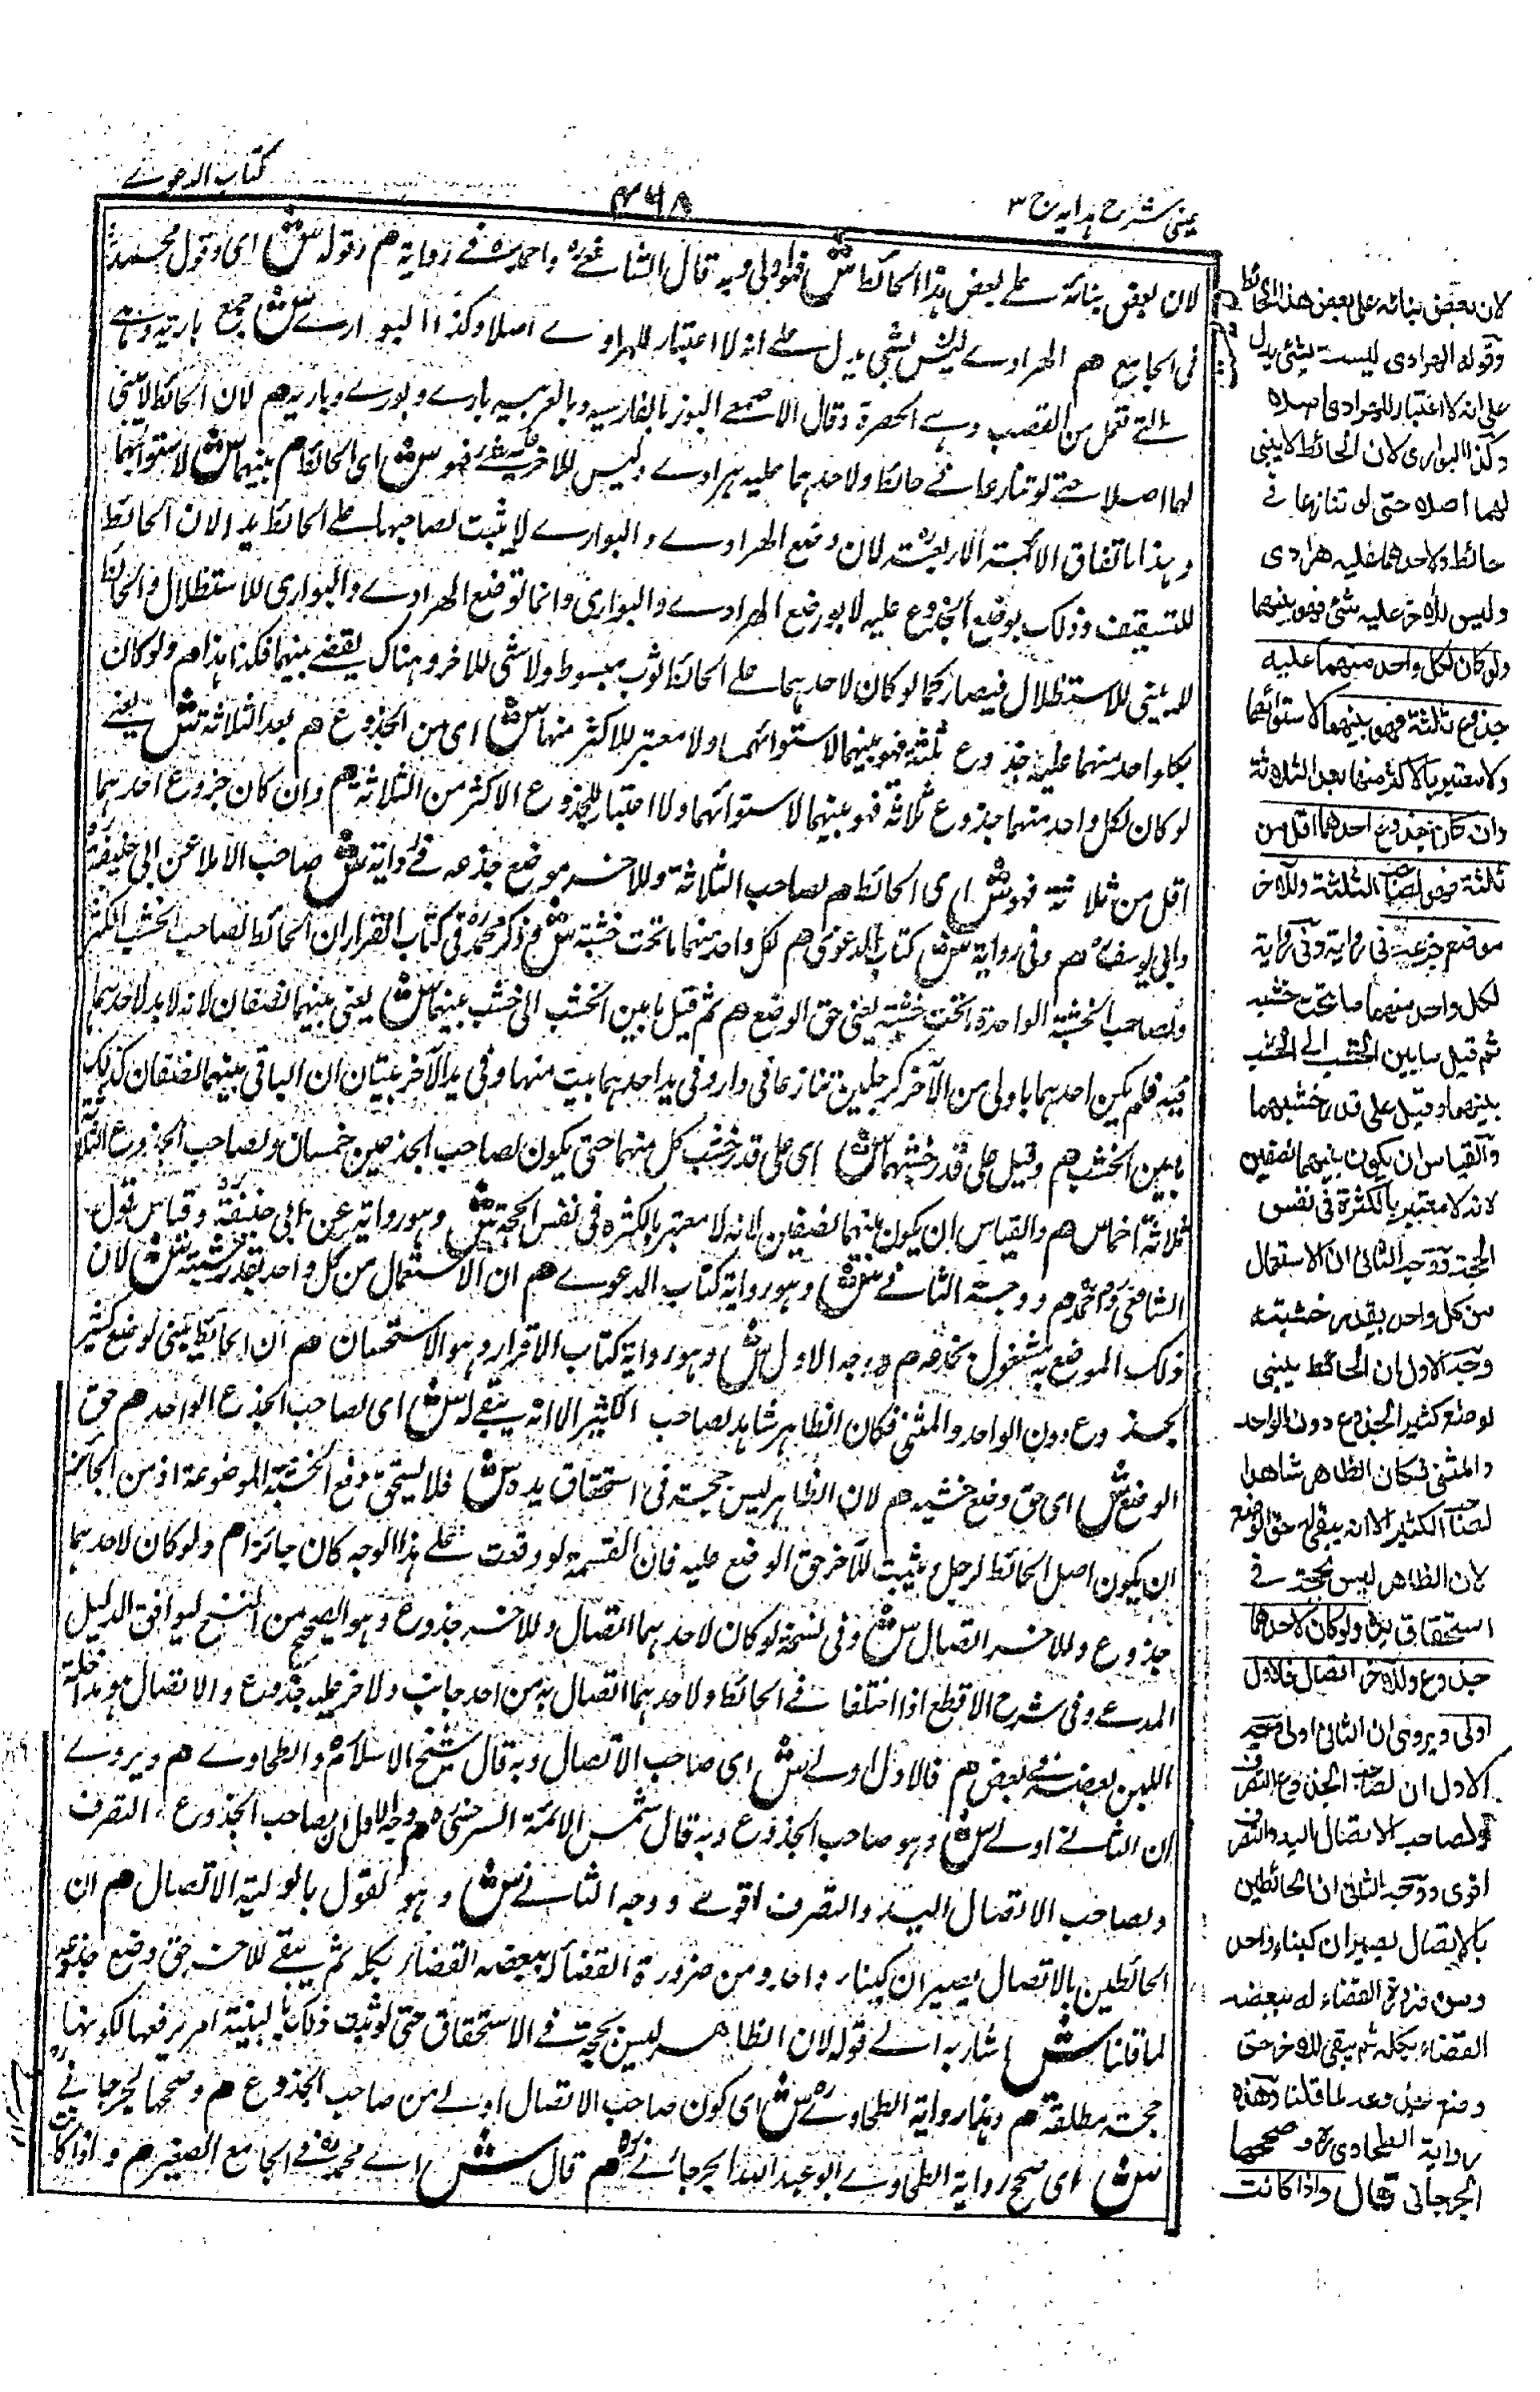 عینی شرح ہدایہ ج ۳
۴۶۸
کتاب الدعوے
لان بعض بنائه علے بعض ہذا الحائط ش فہوا ولی وبہ قال الشافعے رہ واحمد رہ فے روایۃ هم وقولہ ش ای وقول محمد
فی الجامع هم الہرادے لیس بشی یدل علے انہ لا اعتبار للہرادے اصلا وکذا البوارے ش جمع باریۃ وہے
التے تعمل من القصب وہے الحصرۃ وقال الاصمعے البوز بالفارسیہ وبالعربیہ بارے وبورے وباریہ هم لان الحائط لا یبنی
لہا اصلا حتے لو تنازعا فے حائط ولاحدہما علیہ ہرادے ولیس للاخر علیہ شے فہو ش ای الحائط هم بینہما ش لاستوائہما
وہذا باتفاق الائمۃ الاربعۃ لان وضع الہرادے والبوارے لا یثبت لصاحبہا علے الحائط یدا لان الحائط
للتسقیف وذلک بوضع الجذوع علیہ لا بوضع الہرادے والبواری وانما توضع الہرادے والبواری للاستظلال والحائط
لا یبنی للاستظلال فیصار کما لو کان لاحدہما علے الحائط ثوب مبسوط ولا شی للاخر وہناک یقضے بینہما فکذا ہذا هم ولو کان
لکل واحد منہما علیہ جذوع ثلثۃ فہو بینہما لاستوائہما ولا معتبر للاکثر منہا ش ای من الجذوع هم بعد الثلاثۃ ش یعنے
لو کان لکل واحد منہما جذوع ثلاثۃ فہو بینہما لاستوائہما ولا اعتبار للجذوع الاکثر من الثلاثۃ هم وان کان جزوع احدہما
اقل من ثلاثۃ فہو ش ای الحائط هم لصاحب الثلاثۃ وللاخر موضع جذعہ فے روایۃ ش صاحب الاملا عن ابی حنیفۃ
وابی یوسف رہ هم وفی روایۃ ش کتاب الدعوی هم لکل واحد منہما ما تحت خشبۃ ش وذکر محمد رہ فی کتاب الاقرار ان الحائط لصاحب الخشب الکثر
ولصاحب الخشبۃ الواحدۃ ما تحت خشبۃ یعنی حق الوضع هم ثم قیل ما بین الخشب الی خشب بینہما ش یعنی بینہما نصفان لانہ لا ید لاحدہما
فیہ فلم یکن احدہما باولی من الآخر کرجلین تنازعا فی دار وفی ید احدہما بیت منہا وفی ید الآخر بیتان ان الباقی بینہما نصفان کذلک
ما بین الخشب هم وقیل علی قدر خشبہما ش ای علی قدر خشب کل منہما حتی یکون لصاحب الجذعین خمسان ولصاحب الجذوع الثلاثۃ
ثلاثۃ اخماس هم والقیاس ان یکون بینہما نصفین لانہ لا معتبر بالکثرۃ فی نفس الحجۃ ش وہو روایۃ عن ابی حنیفۃ وقیاس قول
الشافعی رہ واحمد رہ هم ووجہ الثانے ش وہو روایۃ کتاب الدعوے هم ان الاستعمال من کل واحد بقدر خشبتہ ش لان
ذلک الموضع بہ مشغول بخارجہ هم ووجہ الاول ش وہو روایۃ کتاب الاقرار وہو الاستحسان هم ان الحائط یبنی لوضع کثیر
الجذوع دون الواحد والمثنی فکان الظاہر شاہد لصاحب الکثیر الا انہ یبقے لہ ش ای لصاحب الجذع الواحد هم حق
الوضع ش ای حق وضع خشبہ هم لان الظاہر لیس بحجۃ فی استحقاق یدہ ش فلا یستحق دفع الخشبۃ الموضوعۃ اذ من الجائز
ان یکون اصل الحائط لرجل ویثبت للآخر حق الوضع علیہ فان القسمۃ لو وقعت علے ہذا الوجہ کان جائزا هم ولو کان لاحدہما
جذوع وللاخر اتصال ش وفی نسخۃ لو کان لاحدہما اتصال وللاخر جذوع وہو الصحیح من النسخ لیوافق الدلیل
المدعے وفی شرح الاقطع اذا اختلفا فے الحائط ولاحدہما اتصال بہ من احد جانب ولاخر علیہ جذوع والاتصال ہو مداخلۃ
اللبن بعضہ فے بعض هم فالاول اولے ش ای صاحب الاتصال وبہ قال شیخ الاسلام رہ والطحاوے هم ویروے
ان الثانے اولے ش وہو صاحب الجذوع وبہ قال شمس الائمۃ السرخسی رہ هم وجہ الاول ان لصاحب الجذوع التصرف
ولصاحب الاتصال الید والتصرف اقوے ووجہ الثانے ش وہو لقول بالولیۃ الاتصال هم ان
الحائطین بالاتصال یصیران کبناء واحد ومن ضرورۃ القضاء لہ ببعضہ القضاء بکلہ ثم یبقے للاخر حق وضع جذوعہ
لما قلنا ش اشار بہ الے قولہ لان الظاہر لیس بحجۃ فے الاستحقاق حتی لو ثبت ذلک بالبینۃ امر برفعہا لکونہا
حجۃ مطلقۃ هم وہذہ روایۃ الطحاوے رہ ش ای کون صاحب الاتصال اولے من صاحب الجذوع هم وصححہا الجرجانے رہ
ش ای صحح روایۃ الطحاوے ابو عبد اللہ الجرجانے رہ هم قال ش اے محمد رہ فے الجامع الصغیر هم واذا کانت
لان بعض بنائه على بعض هذا الحائط
وقوله الهرادى ليست بشئ يدل
على انه لا اعتبار للهرادى اصلا
وكذا البوارى لان الحائط لا يبنى
لهما اصلا حتى لو تنازعا فے
حائط ولاحدهما عليه هرادى
وليس للآخر عليه شئ فهو بينهما
ولو كان لكل واحد منهما عليه
جذوع ثلثة فهو بينهما لاستوائهما
ولا معتبر بالاكثر منها بعد الثلاثة
وان كان جذوع احدهما اقل من
ثلثة فهو لصاحب الثلثة وللآخر
موضع جذعه فى رواية وفى رواية
لكل واحد منهما ما تحت خشبه
ثم قيل ما بين الخشب الى الخشب
بينهما وقيل على قدر خشبهما
والقياس ان يكون بينهما نصفين
لانه لا معتبر بالكثرة فى نفس
الحجة ووجه الثانى ان الاستعمال
من كل واحد بقدر خشبته
وجه الاول ان الحائط يبنى
لوضع كثير الجذوع دون الواحد
والمثنى فكان الظاهر شاهدا
لصاحب الكثير الا انه يبقى له حق الوضع
لان الظاهر ليس بحجة فے
استحقاق يده ولو كان لاحدهما
جذوع وللآخر اتصال فالاول
اولى ويروى ان الثانى اولى وجه
الاول ان لصاحب الجذوع التصرف
ولصاحب الاتصال اليد والتصرف
اقوى ووجه الثانى ان الحائطين
بالاتصال يصيران كبناء واحد
ومن ضرورة القضاء له ببعضه
القضاء بكله ثم يبقى للآخر حق
وضع جذوعه لما قلنا وهذه
رواية الطحاوى رح وصححها
الجرجانى قال واذا كانت